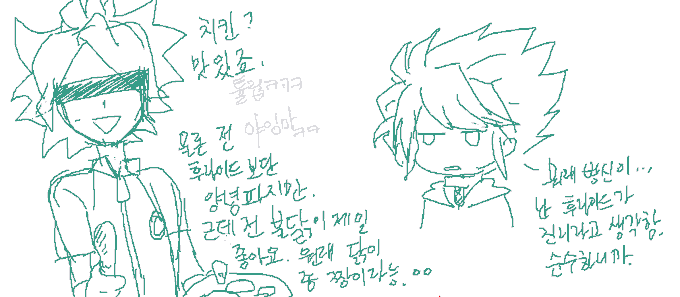 치킨?
맛있죠.
틀럼ㅋㅋㅋ
야임마ㅋㅋ
물론 전
후라이드 보단
양념파지만.
근데 전 불닭이 제일
좋아요. 원래 닭이
좀 짱이라능.ㅇㅇ
뭐래 병신이...
난 후라이드가
진리라고 생각함.
순수하니까.